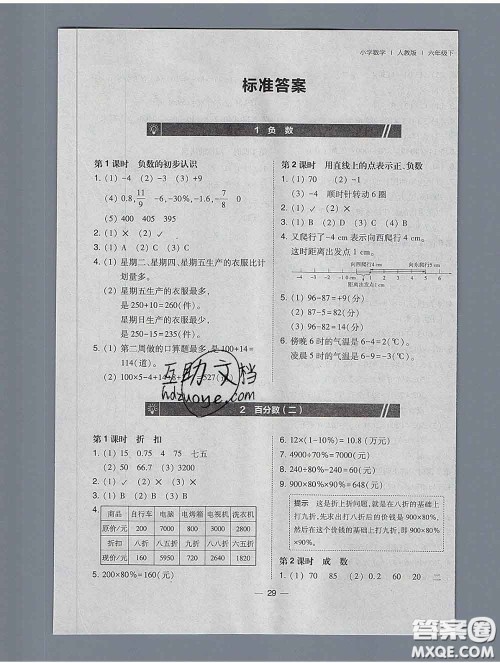 小学数学 | 人教版 | 六年级下
标准答案
1 负 数
第1课时 负数的初步认识
1. (1) -4 (2) -3 (3) +9
(4) 0.8, 11/9 -6, -30%, -1.6, -7/8 0
(5) 400 405 395
2. (1) ✓ (2) ×
3. (1) A (2) C (3) B
4. (1) 星期二、星期四、星期五生产的衣服比计
划量多。
(2) 星期五生产的衣服最多,
是 250+10=260(件)。
星期日生产的衣服最少,
是 250-15=235(件)。
6. (1) 第二周做的口算题最多, 是 100+14=
114(道)。
(2) 100×5-4+14+
=527(
第2课时 用直线上的点表示正、负数
1. (1) 70 (2) -1
(3) -4 顺时针转动6圈
2. (1) ✓ (2) ×
3. (1) B (2) D (3) A
4. 又爬行了 -4 cm 表示向西爬行 4 cm。
这时距离出发点 1 cm。
向西爬行4 cm 向东爬行5 cm
-1 0 1 2 3 4 5 6
距离出发点1 cm
5. (1) 96-87=+9(分)
(2) 87-96=-9(分)
6. 傍晚6时的气温是 6-4=2(℃)
凌晨5时的气温是 6-9=-3(℃)
互助文档
hdzuoye.com
2 百分数(二)
第1课时 折 扣
1. (1) 15 0.75 4 75 七五
(2) 50 66.7 (3) 3200
2. (1) ✓ (2) × (3) ✓
3. (1) C (2) B (3) B
4.
商品 自行车 电脑 电烤箱 电视机 洗衣机
原价/元 200 7000 800 3300 2800
折扣 八折 八五折 九折 八折 六五折
现价/元 160 5950 720 2640 1820
5. 200×80%=160(元)
6. 12×(1-10%)=10.8(万元)
7. 4900÷70%=7000(元)
8. 240÷80%-240=60(元)
9. 900×80%×90%=648(元)
提示 这是折上折问题,就是在八折的基础上
打九折,先求出打八折后的价钱是 900×80%,
再在这个价钱的基础上打九折,即 900×80%
×90%。
第2课时 成 数
1. (1) 70 85 (2) 0.2 60 20 二
29
答案圈
MXQE.COM